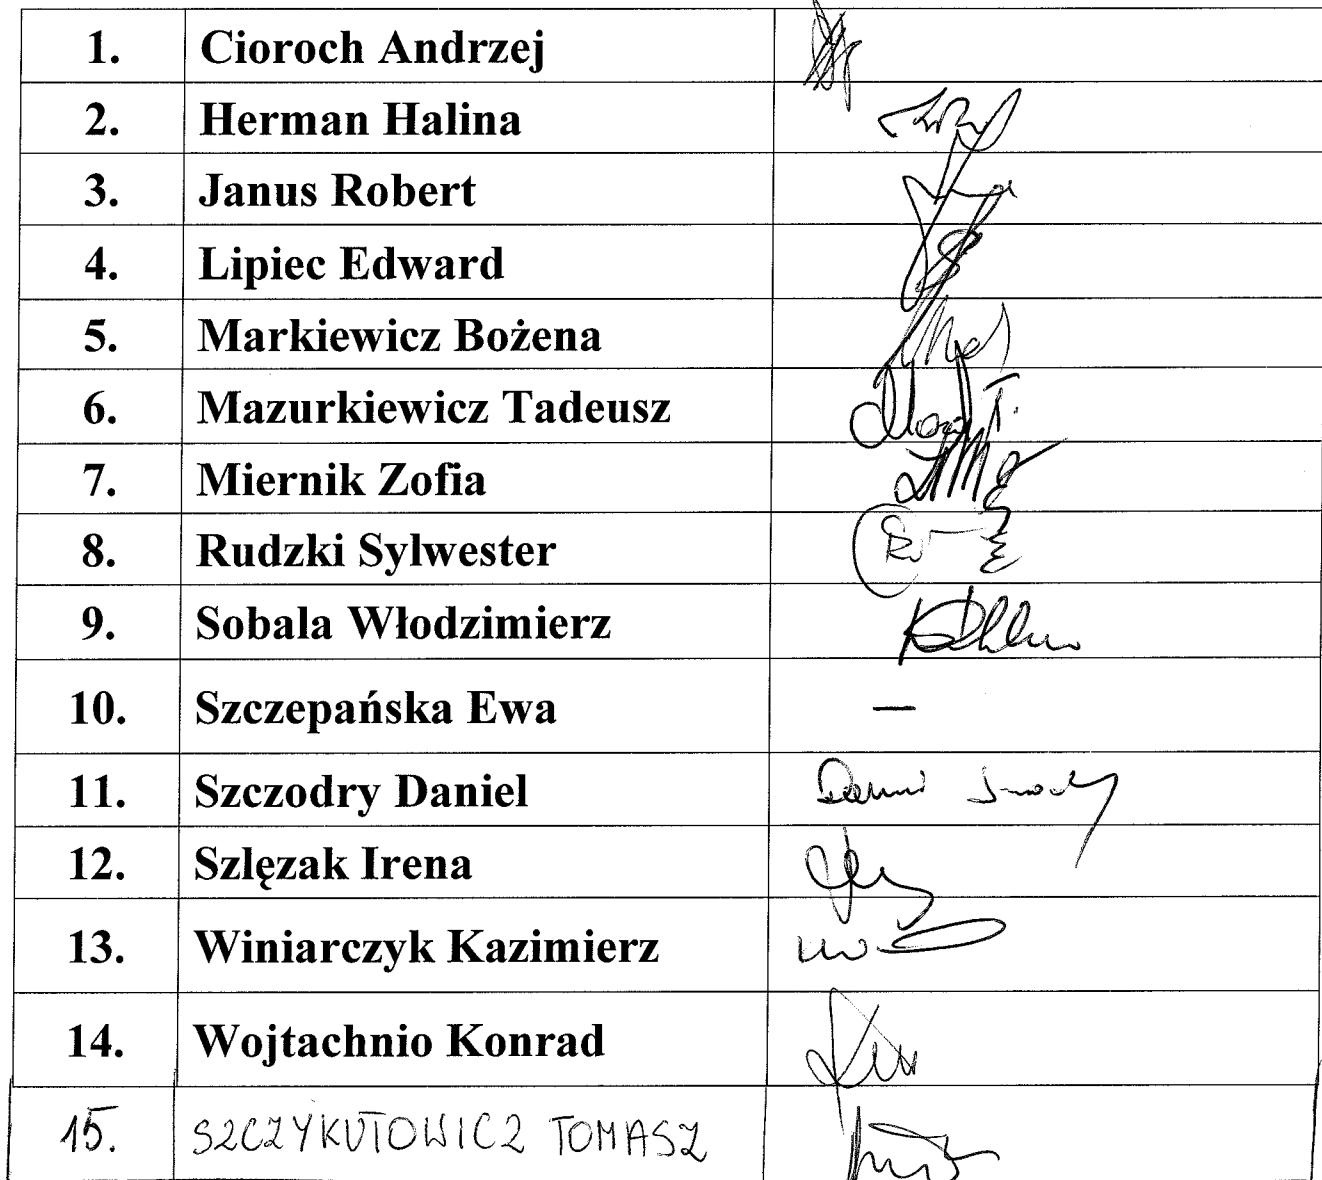 1. Cioroch Andrzej
2. Herman Halina
3. Janus Robert
4. Lipiec Edward
5. Markiewicz Bożena
6. Mazurkiewicz Tadeusz
7. Miernik Zofia
8. Rudzki Sylwester
9. Sobala Włodzimierz
10. Szczepańska Ewa —
11. Szczodry Daniel
12. Szlęzak Irena
13. Winiarczyk Kazimierz
14. Wojtachnio Konrad
15. SZCZYKUTOWICZ TOMASZ